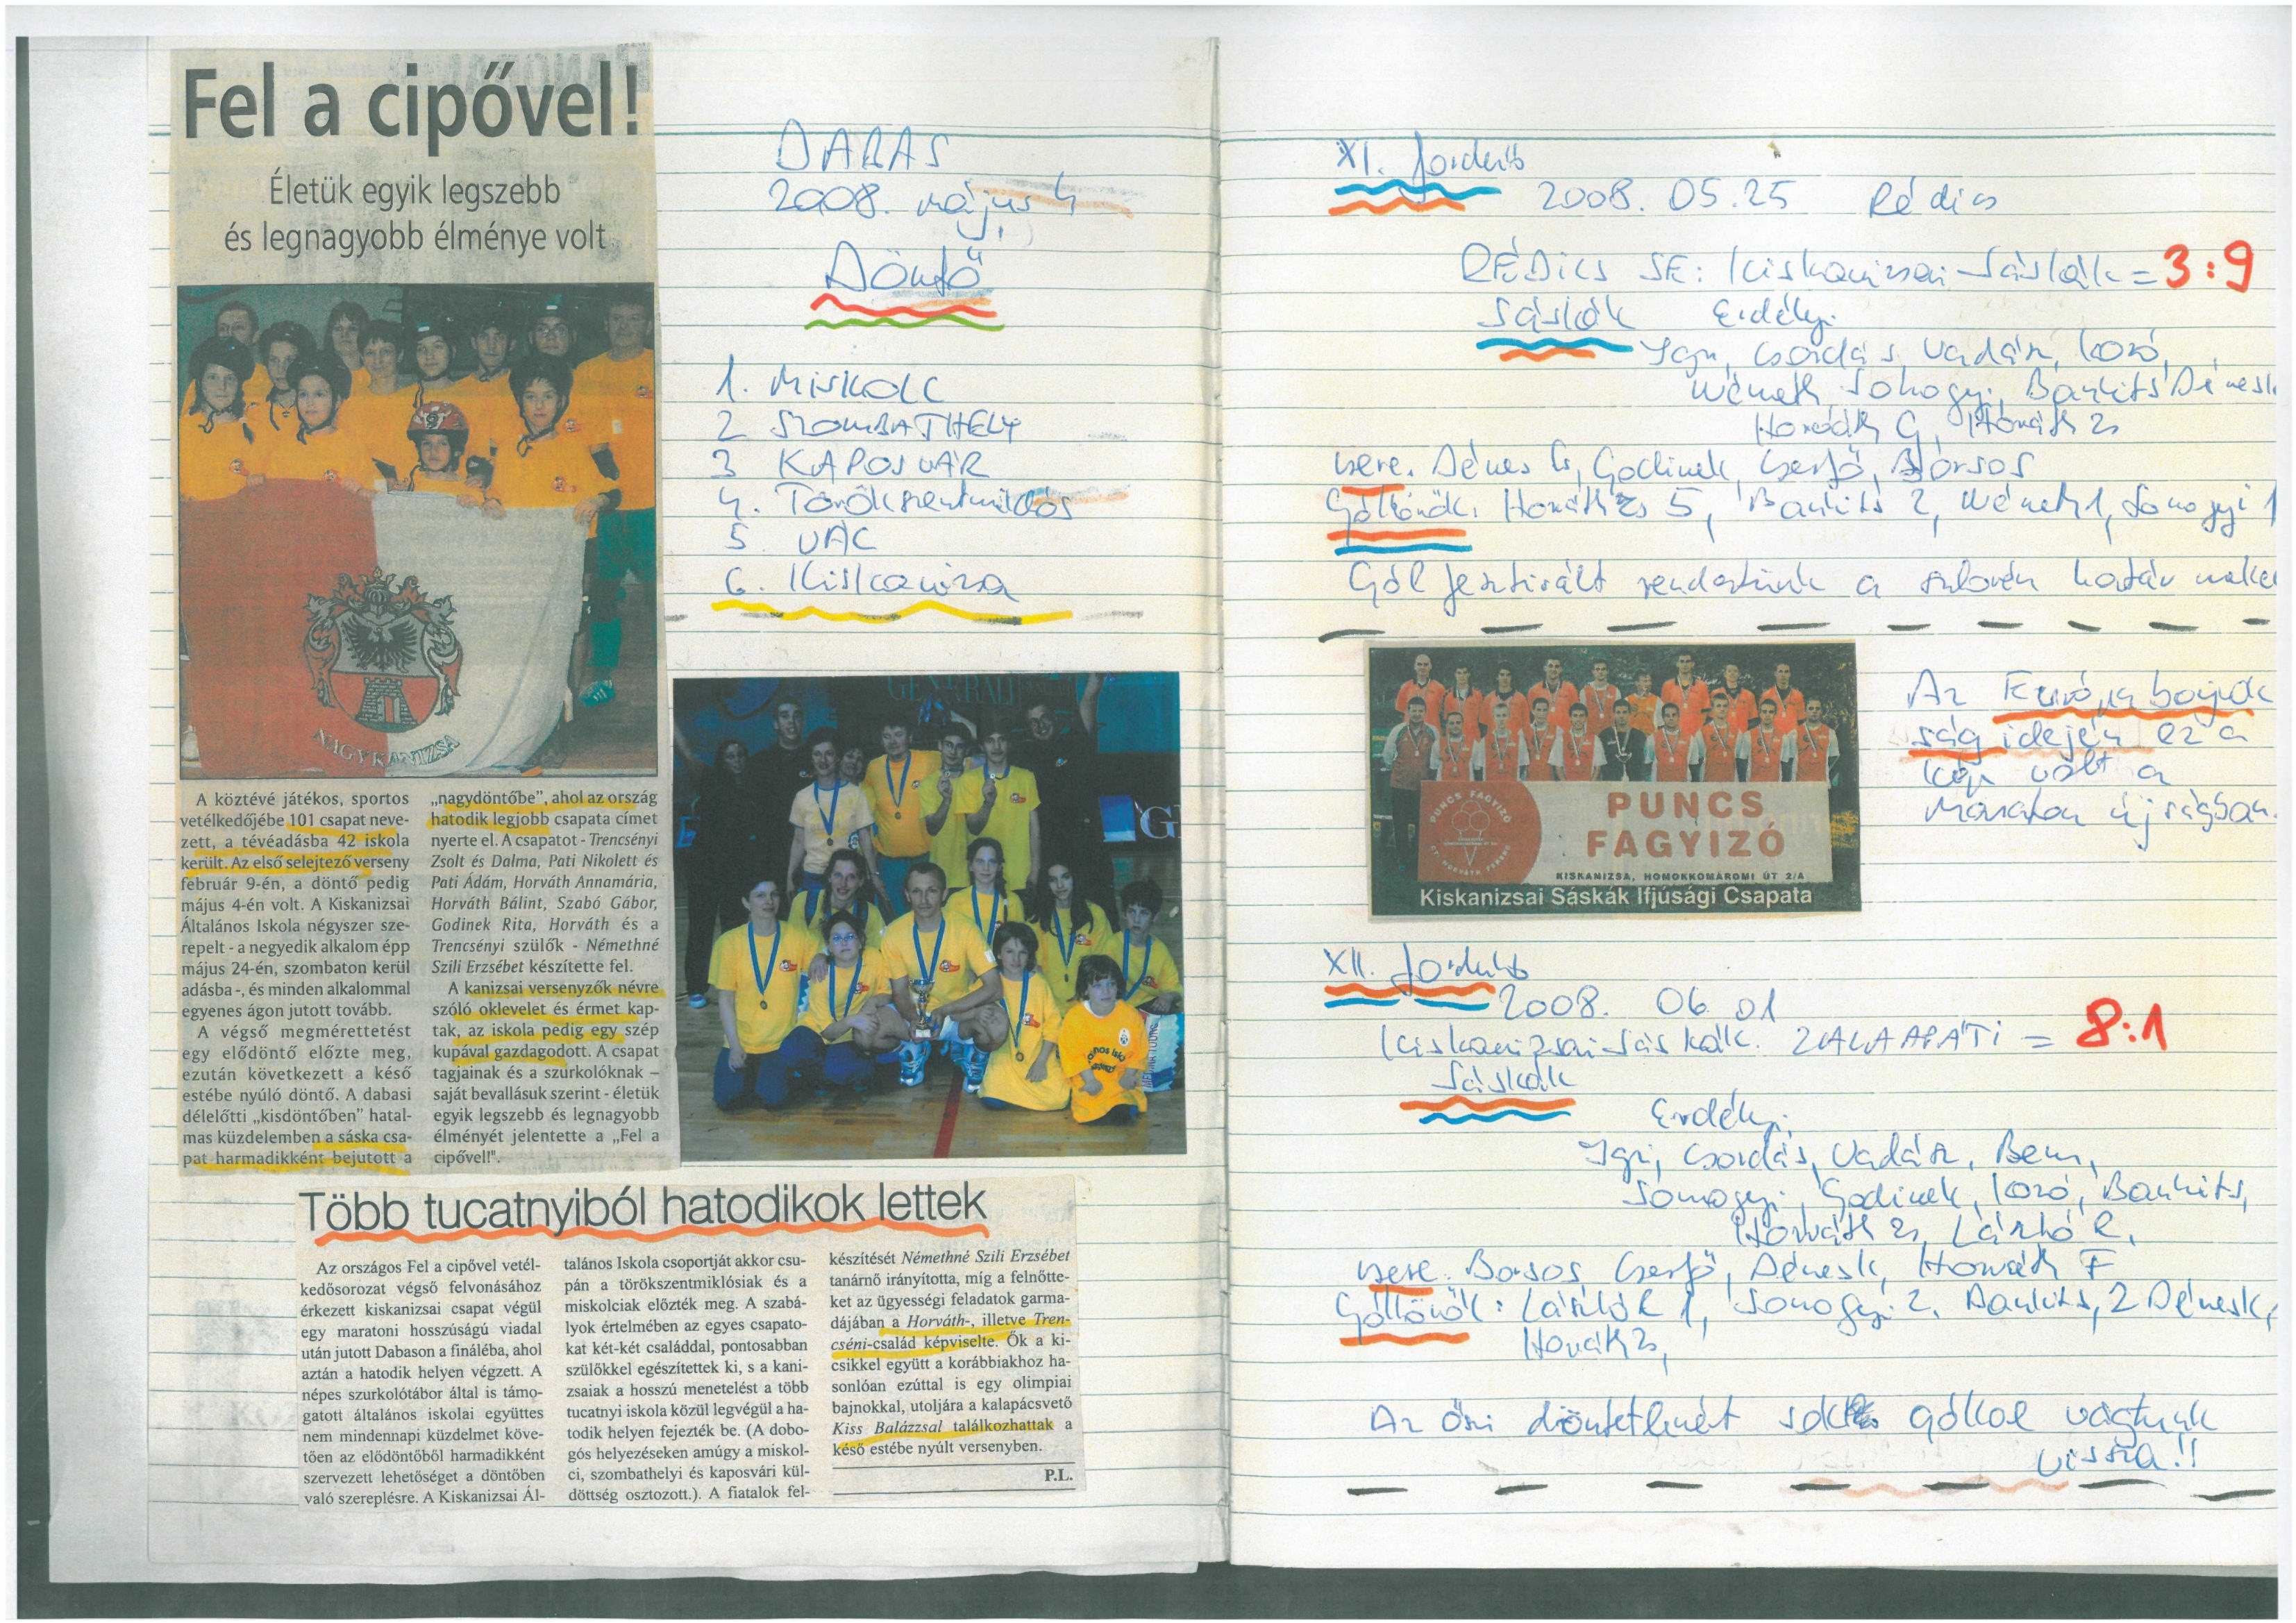 Fel a cipővel!
Életük egyik legszebb
és legnagyobb élménye volt
NAGYKANIZSA
A köztévé játékos, sportos
vetélkedőjébe 101 csapat neve-
zett, a tévéadásba 42 iskola
került. Az első selejtező verseny
február 9-én, a döntő pedig
május 4-én volt. A Kiskanizsai
Általános Iskola négyszer sze-
repelt - a negyedik alkalom épp
május 24-én, szombaton kerül
adásba -, és minden alkalommal
egyenes ágon jutott tovább.
A végső megmérettetést
egy elődöntő előzte meg,
ezután következett a késő
estébe nyúló döntő. A dabasi
délelőtti „kisdöntőben” hatal-
mas küzdelemben a sáska csa-
pat harmadikként bejutott a
„nagydöntőbe”, ahol az ország
hatodik legjobb csapata címet
nyerte el. A csapatot - Trencsényi
Zsolt és Dalma, Pati Nikolett és
Pati Ádám, Horváth Annamária,
Horváth Bálint, Szabó Gábor,
Godinek Rita, Horváth és a
Trencsényi szülők - Némethné
Szili Erzsébet készítette fel.
A kanizsai versenyzők névre
szóló oklevelet és érmet kap-
tak, az iskola pedig egy szép
kupával gazdagodott. A csapat
tagjainak és a szurkolóknak –
saját bevallásuk szerint - életük
egyik legszebb és legnagyobb
élményét jelentette a „Fel a
cipővel!".
DABAS
2008. május 4
Döntő
1. MISKOLC
2 SZOMBATHELY
3 KAPOSVÁR
4. Törökszentmiklós
5 VÁC
6. Kiskanizsa
GENERALI
Több tucatnyiból hatodikok lettek
Az országos Fel a cipővel vetél-
kedősorozat végső felvonásához
érkezett kiskanizsai csapat végül
egy maratoni hosszúságú viadal
után jutott Dabason a fináléba, ahol
aztán a hatodik helyen végzett. A
népes szurkolótábor által is támo-
gatott általános iskolai együttes
nem mindennapi küzdelmet köve-
tően az elődöntőből harmadikként
szervezett lehetőséget a döntőben
való szereplésre. A Kiskanizsai Ál-
talános Iskola csoportját akkor csu-
pán a törökszentmiklósiak és a
miskolciak előzték meg. A szabá-
lyok értelmében az egyes csapato-
kat két-két családdal, pontosabban
szülőkkel egészítettek ki, s a kani-
zsaiak a hosszú menetelést a több
tucatnyi iskola közül legvégül a ha-
todik helyen fejezték be. (A dobo-
gós helyezéseken amúgy a miskol-
ci, szombathelyi és kaposvári kül-
döttség osztozott.). A fiatalok fel-
készítését Némethné Szili Erzsébet
tanárnő irányította, míg a felnőtte-
ket az ügyességi feladatok garma-
dájában a Horváth-, illetve Tren-
cséni-család képviselte. Ők a ki-
csikkel együtt a korábbiakhoz ha-
sonlóan ezúttal is egy olimpiai
bajnokkal, utoljára a kalapácsvető
Kiss Balázzsal találkozhattak a
késő estébe nyúlt versenyben.
P.L.
XI. forduló
2008. 05.25 Rédics
RÉDICS SE: Kiskanizsai Sáskák = 3:9
Sáskák Erdélyi
Igr, Csordás Vadász, Kozó,
Németh Somogyi, Bankits Dénesk
Horváth G, Horváth Zs
csere. Dénes G, Godinek, Cserfő, Borsos
Góllövők: Horváth Zs 5, Bankits 2, Németh 1, Somogyi 1
Gólfesztivált rendeztünk a szlovén határ
Az Európa bajnok
ság idején ez a
kép volt a
Maraton újságban.
PUNCS FAGYIZÓ
PUNCS
FAGYIZÓ
KISKANIZSA, HOMOKKOMÁROMI ÚT 2/A
Kiskanizsai Sáskák Ifjúsági Csapata
XII. forduló
2008. 06 01
Kiskanizsai Sáskák. ZALAAPÁTI = 8:1
Sáskák
Erdélyi
Igr, Csordás, Vadász, Bem,
Somogyi, Godinek, Kozó, Bankits,
Horváth Zs, László R,
csere. Borsos, Cserfő, Dénesk, Horváth F
Góllövők: László R 1, Somogyi 2, Bankits, 2 Dénesk,
Horváth Zs,
Az őszi döntetlenért sok gólkal vágtunk
vissza!!